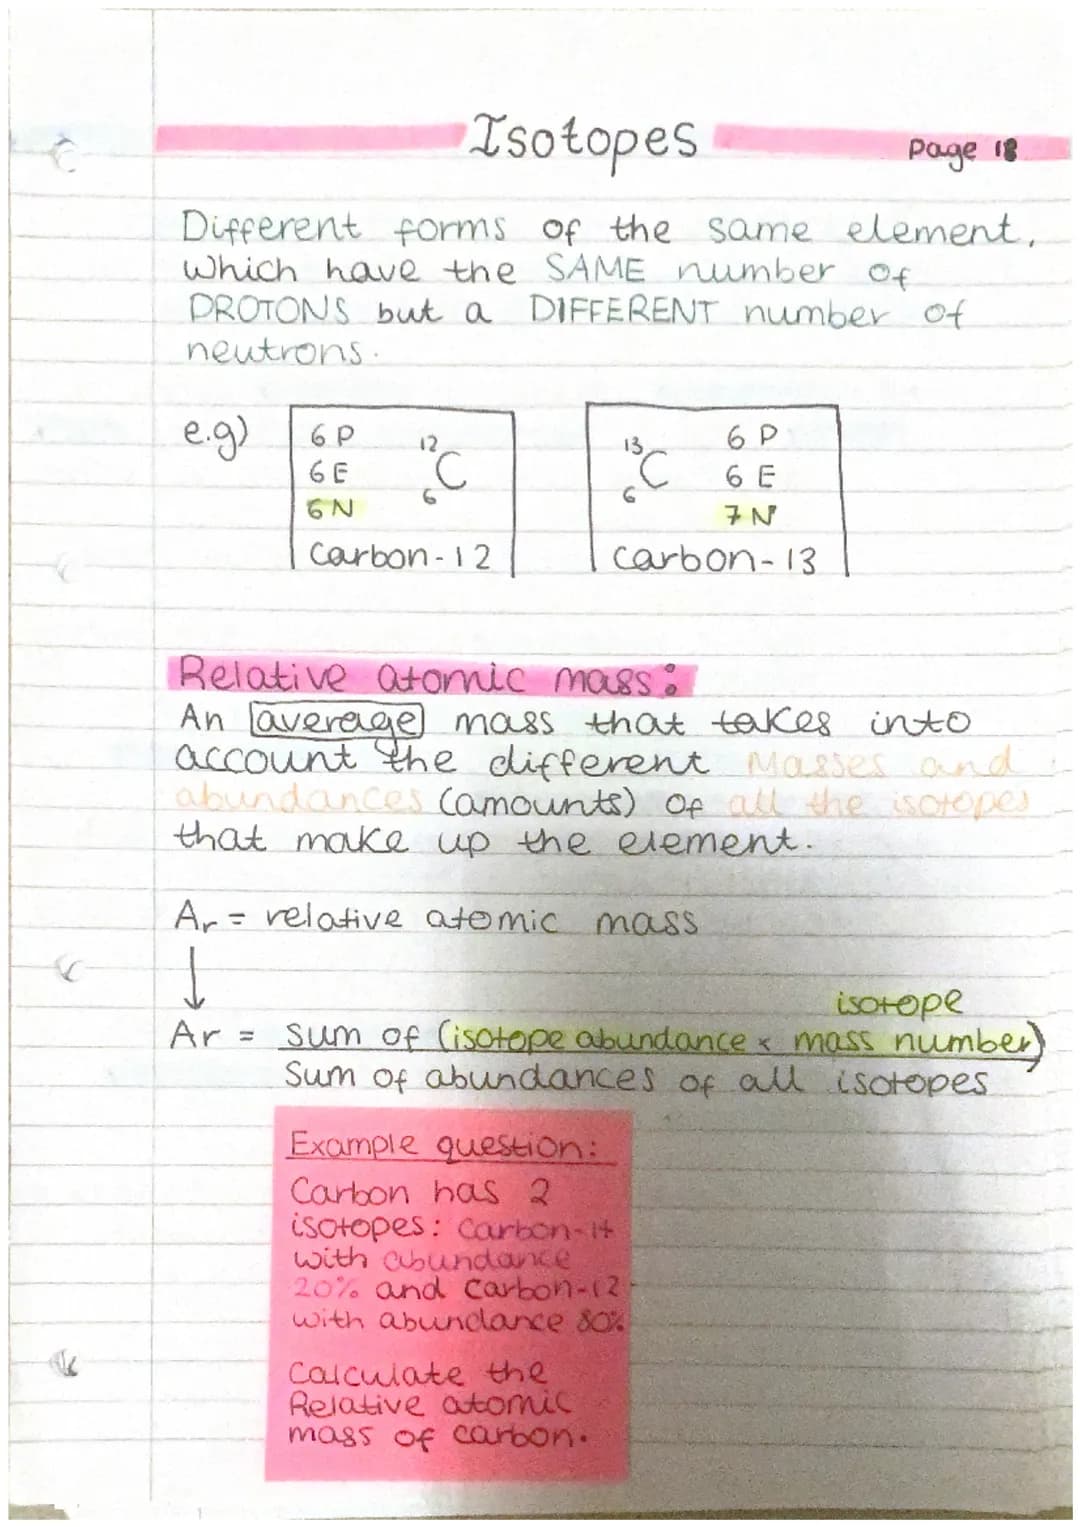 Isotopes
Page 18
Different forms of the same element,
which have the SAME number of
PROTONS but a DIFFERENT number of
neutrons.
e.g)
6 P
6 E
6 N
12
6
C
Carbon-12
13
6
C
6 P
6 E
7 N
Carbon-13
Relative atomic mass:
An average mass that takes into
account the different Masses and
abundances (amounts) of all the isotopes
that make up the element.
Ar = relative atomic mass
↓
isotope
Ar = Sum of (isotope abundance x mass number)
Sum of abundances of all isotopes
Example question:
Carbon has 2
isotopes: Carbon-14
with abundance
20% and Carbon-12
with abundance 80%
Calculate the
Relative atomic
mass of carbon.